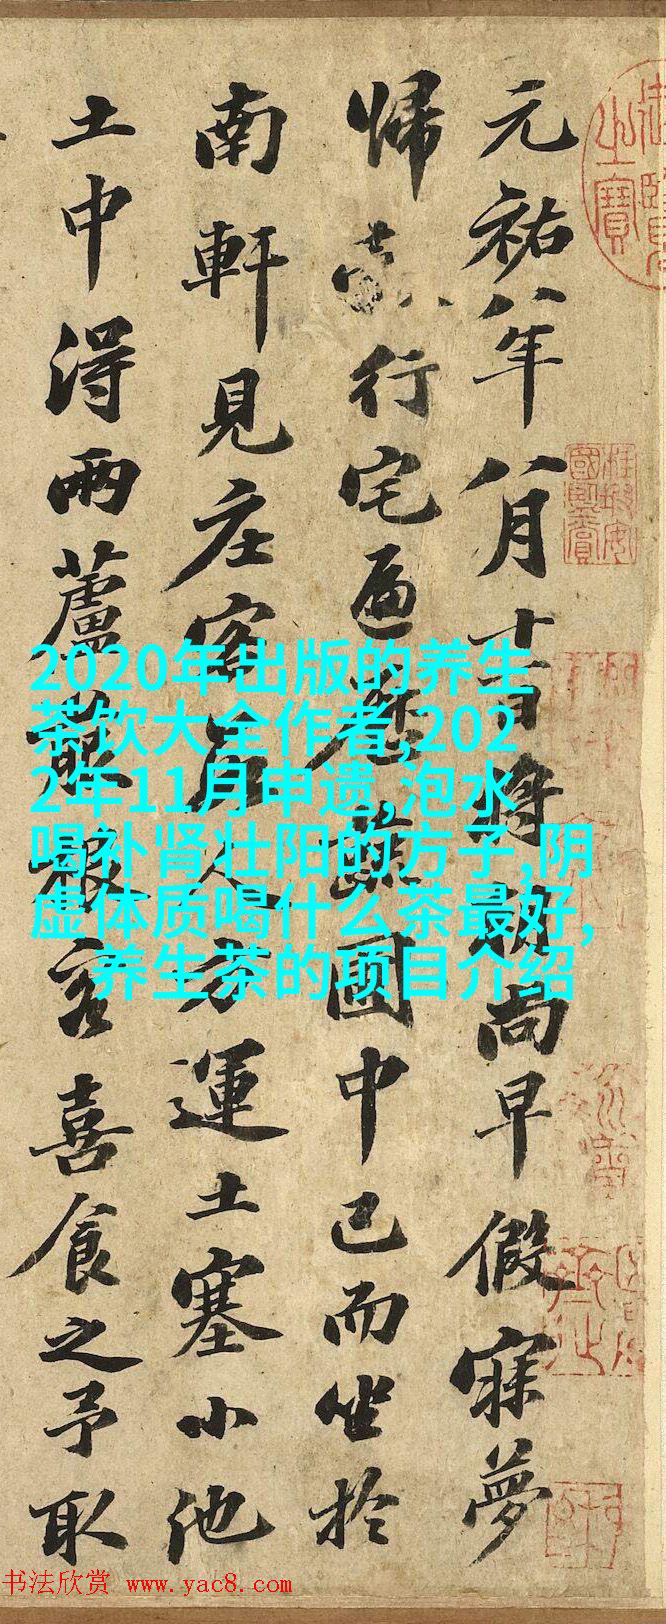 元祐八年八月十一日將朝尚早假寐夢
歸行宅遍歷蔬園中已而坐於
南軒見庄客數人方運土塞小池
土中得兩蘆菔根客喜食之予取
2020年出版的养生
茶饮大全作者,202
2年11月申遗,泡水
喝补肾壮阳的方子,阴
虚体质喝什么茶最好,
养生茶的项目介绍
书法欣赏 www.yac8.com